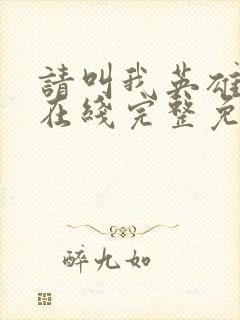 請叫我英雄
在綫完整免
醉九如